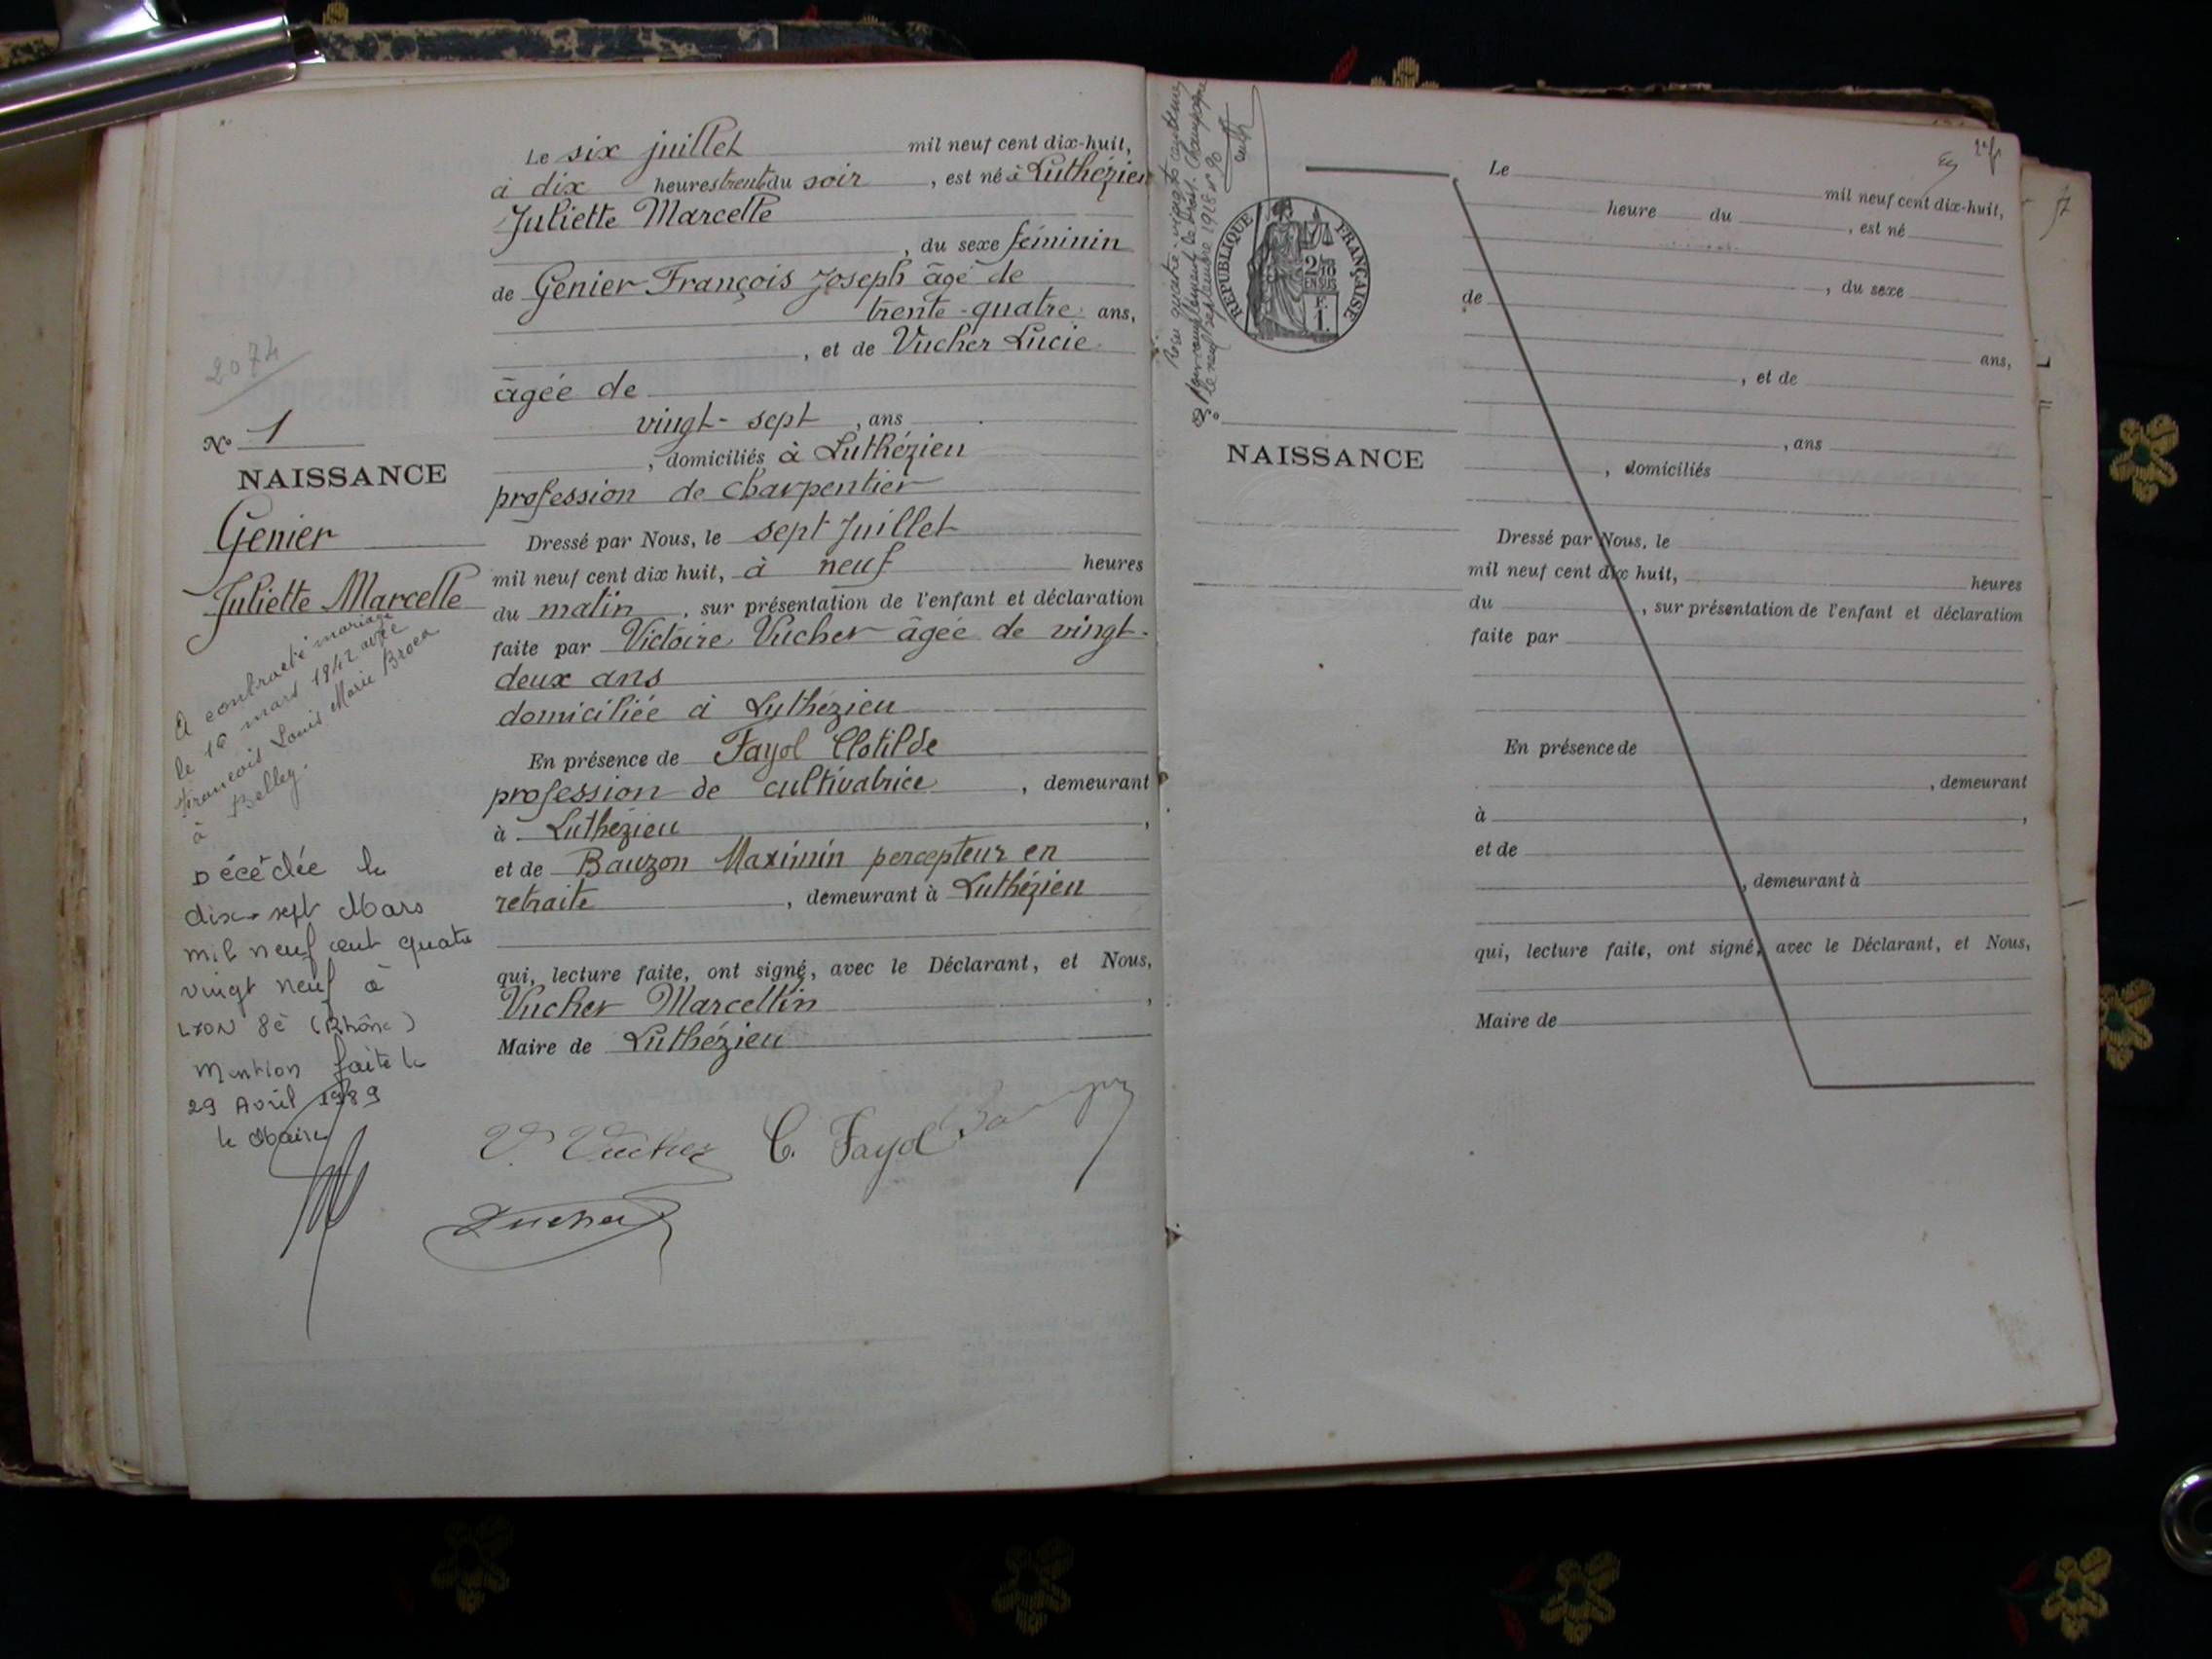 2074
N° 1
NAISSANCE
Genier
Juliette Marcelle
A contracté mariage
le 16 mars 1942 avec
François Louis Marie Broca
à Belley.
Décédée le
dix-sept Mars
mil neuf cent quatre
vingt neuf à
LYON 8è (Rhône)
Mention faite le
29 Avril 1989
le Maire
Le six juillet mil neuf cent dix-huit,
à dix heures trente du soir, est né à Luthézieu
Juliette Marcelle
, du sexe féminin
de Genier François Joseph âgé de
trente-quatre ans,
, et de Vucher Lucie
âgée de
vingt-sept, ans
, domiciliés à Luthézieu
profession de charpentier
Dressé par Nous, le sept Juillet
mil neuf cent dix huit, à neuf heures
du matin, sur présentation de l'enfant et déclaration
faite par Victoire Vucher âgée de vingt-
deux ans
domiciliée à Luthézieu
En présence de Fayol Clotilde
profession de cultivatrice, demeurant
à Luthézieu,
et de Bauzon Maximin percepteur en
retraite, demeurant à Luthézieu
qui, lecture faite, ont signé, avec le Déclarant, et Nous,
Vucher Marcellin,
Maire de Luthézieu
V. Vucher C. Fayol
Vucher
REPUBLIQUE FRANÇAISE
2/10
EN SUS
F.
1.
N°
NAISSANCE
Le mil neuf cent dix-huit,
heure du , est né
, du sexe
de
ans,
, et de
, ans
, domiciliés
Dressé par Nous, le
mil neuf cent dix huit, heures
du , sur présentation de l'enfant et déclaration
faite par
En présence de
, demeurant
à ,
et de
, demeurant à
qui, lecture faite, ont signé, avec le Déclarant, et Nous,
Maire de